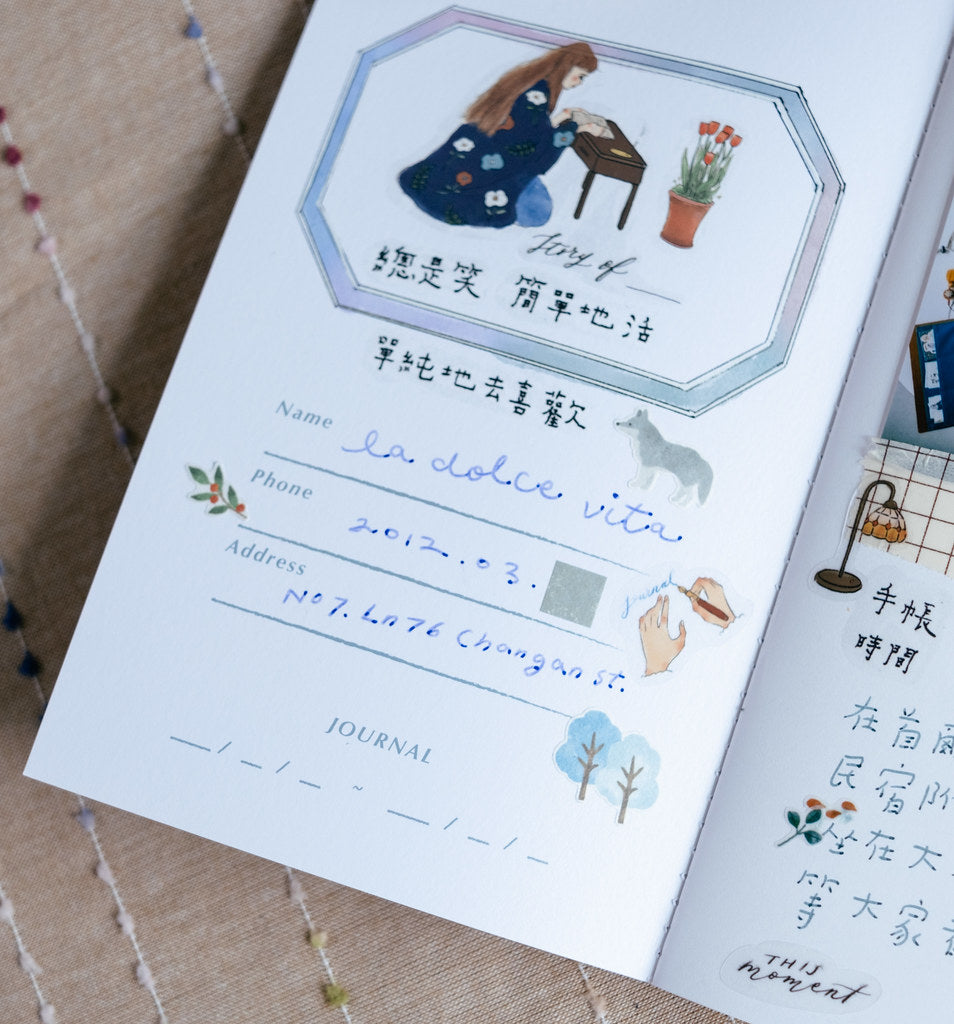 Story of
總是笑 簡單地活
單純地去喜歡
Name
la dolce vita
Phone
2012.03.
Address
No7. Ln76 Changan st.
Journal
JOURNAL
__/__/__ ~ __/__/__
手帳
時間
在首
民宿附
坐在大
等大家
THIS
moment